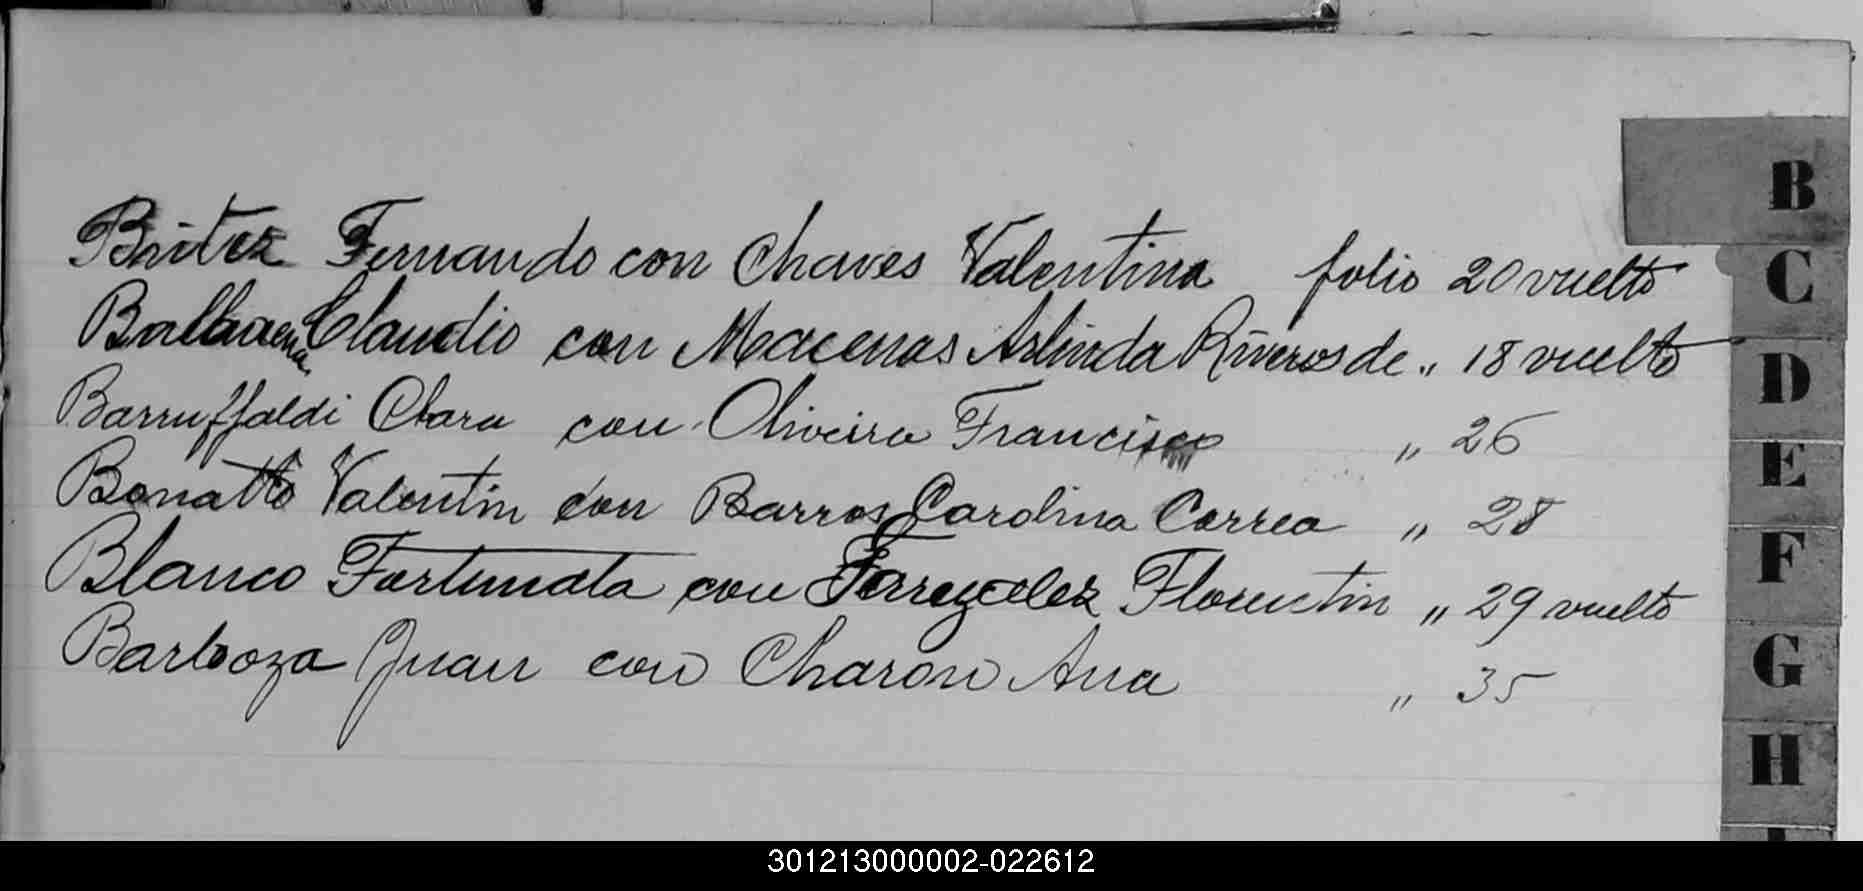 Britez Fernando con Chaves Valentina folio 20 vuelto
Balbuena Claudio con Macenas Arlinda Riveros de „ 18 vuelto
Barruffaldi Clara con Oliveira Francisco „ 26
Bonatto Valentin con Barros Carolina Correa „ 28
Blanco Fortunata con Florentin „ 29 vuelto
Barboza Juan con Charon Ana „ 35
B
C
D
E
F
G
H
301213000002-022612